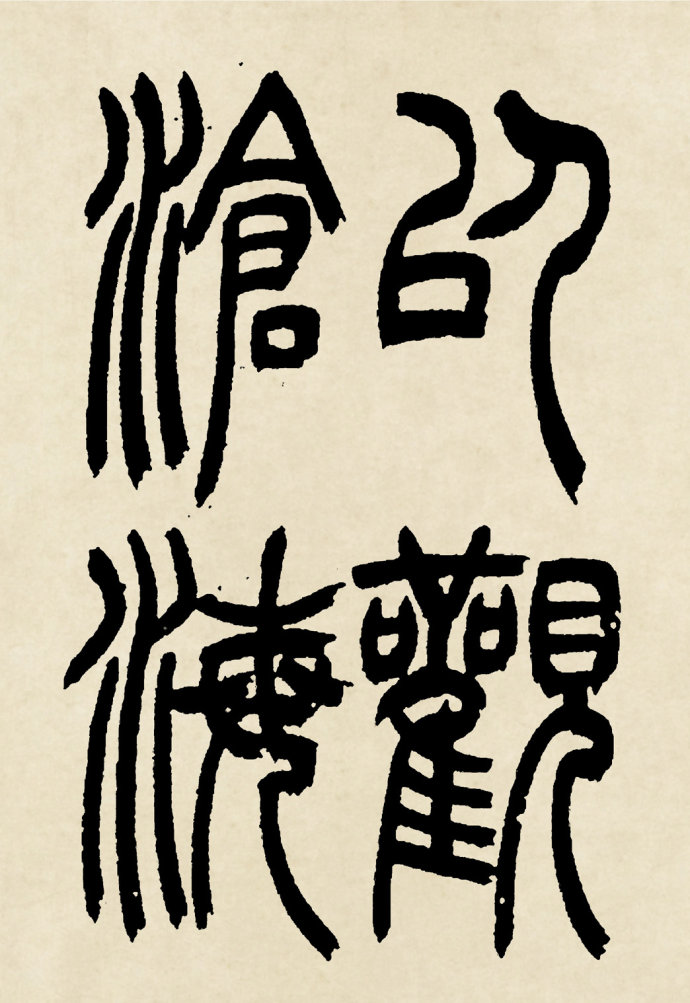 以觀
滄海